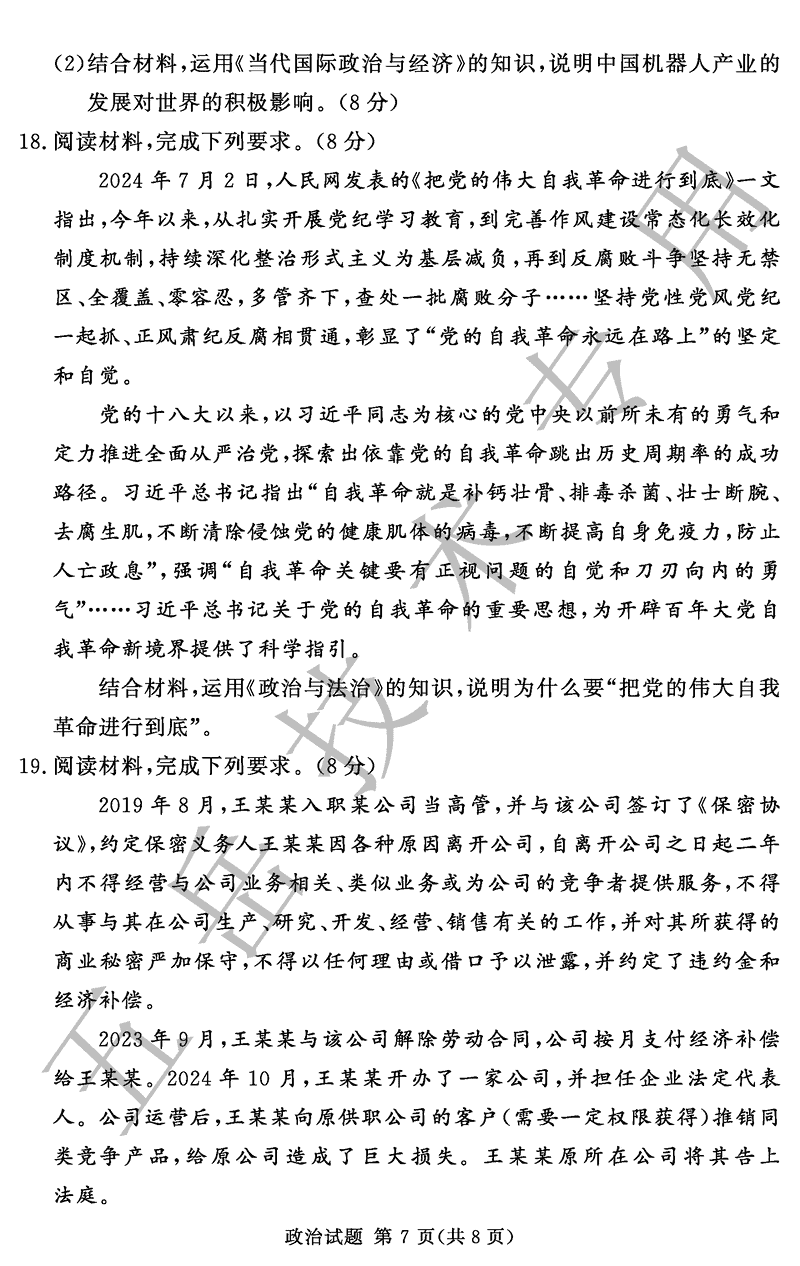 (2)结合材料,运用《当代国际政治与经济》的知识,说明中国机器人产业的
发展对世界的积极影响。(8分)
18. 阅读材料,完成下列要求。(8分)
2024年7月2日,人民网发表的《把党的伟大自我革命进行到底》一文
指出,今年以来,从扎实开展党纪学习教育,到完善作风建设常态化长效化
制度机制,持续深化整治形式主义为基层减负,再到反腐败斗争坚持无禁
区、全覆盖、零容忍,多管齐下,查处一批腐败分子……坚持党性党风党纪
一起抓、正风肃纪反腐相贯通,彰显了“党的自我革命永远在路上”的坚定
和自觉。
党的十八大以来,以习近平同志为核心的党中央以前所未有的勇气和
定力推进全面从严治党,探索出依靠党的自我革命跳出历史周期率的成功
路径。习近平总书记指出“自我革命就是补钙壮骨、排毒杀菌、壮士断腕、
去腐生肌,不断清除侵蚀党的健康肌体的病毒,不断提高自身免疫力,防止
人亡政息”,强调“自我革命关键要有正视问题的自觉和刀刃向内的勇
气”……习近平总书记关于党的自我革命的重要思想,为开辟百年大党自
我革命新境界提供了科学指引。
结合材料,运用《政治与法治》的知识,说明为什么要“把党的伟大自我
革命进行到底”。
19. 阅读材料,完成下列要求。(8分)
2019年8月,王某某入职某公司当高管,并与该公司签订了《保密协
议》,约定保密义务人王某某因各种原因离开公司,自离开公司之日起二年
内不得经营与公司业务相关、类似业务或为公司的竞争者提供服务,不得
从事与其在公司生产、研究、开发、经营、销售有关的工作,并对其所获得的
商业秘密严加保守,不得以任何理由或借口予以泄露,并约定了违约金和
经济补偿。
2023年9月,王某某与该公司解除劳动合同,公司按月支付经济补偿
给王某某。2024年10月,王某某开办了一家公司,并担任企业法定代表
人。公司运营后,王某某向原供职公司的客户(需要一定权限获得)推销同
类竞争产品,给原公司造成了巨大损失。王某某原所在公司将其告上
法庭。
政治试题 第7页(共8页)
五岳技术专用